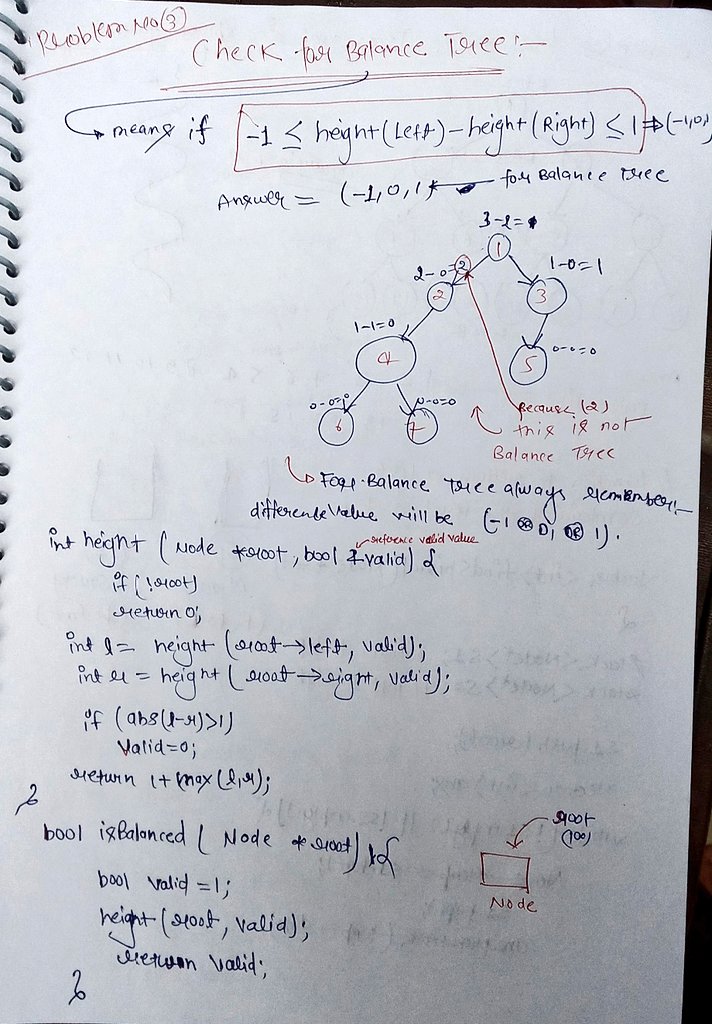 Problem No (3)
Check for Balance Tree:-
means if -1 ≤ height(Left) - height(Right) ≤ 1 ⇒ (-1,0,
Answer = (-1, 0, 1) for Balance Tree
3-2=
1
2-0=2
1-0=1
2
3
1-1=0
4
0-0=0
5
0-0=0
0-0=0
6
7
Because (2)
this is not
Balance Tree
For Balance Tree always remember:-
difference value will be (-1 OR 0, OR 1).
reference valid value
int height (Node *root, bool &valid) {
if (!root)
return 0;
int l = height (root->left, valid);
int r = height (root->right, valid);
if (abs(l-r)>1)
valid=0;
return 1+max(l,r);
}
root
(100)
Node
bool isBalanced ( Node *root) {
bool valid =1;
height (root, valid);
return valid;
}